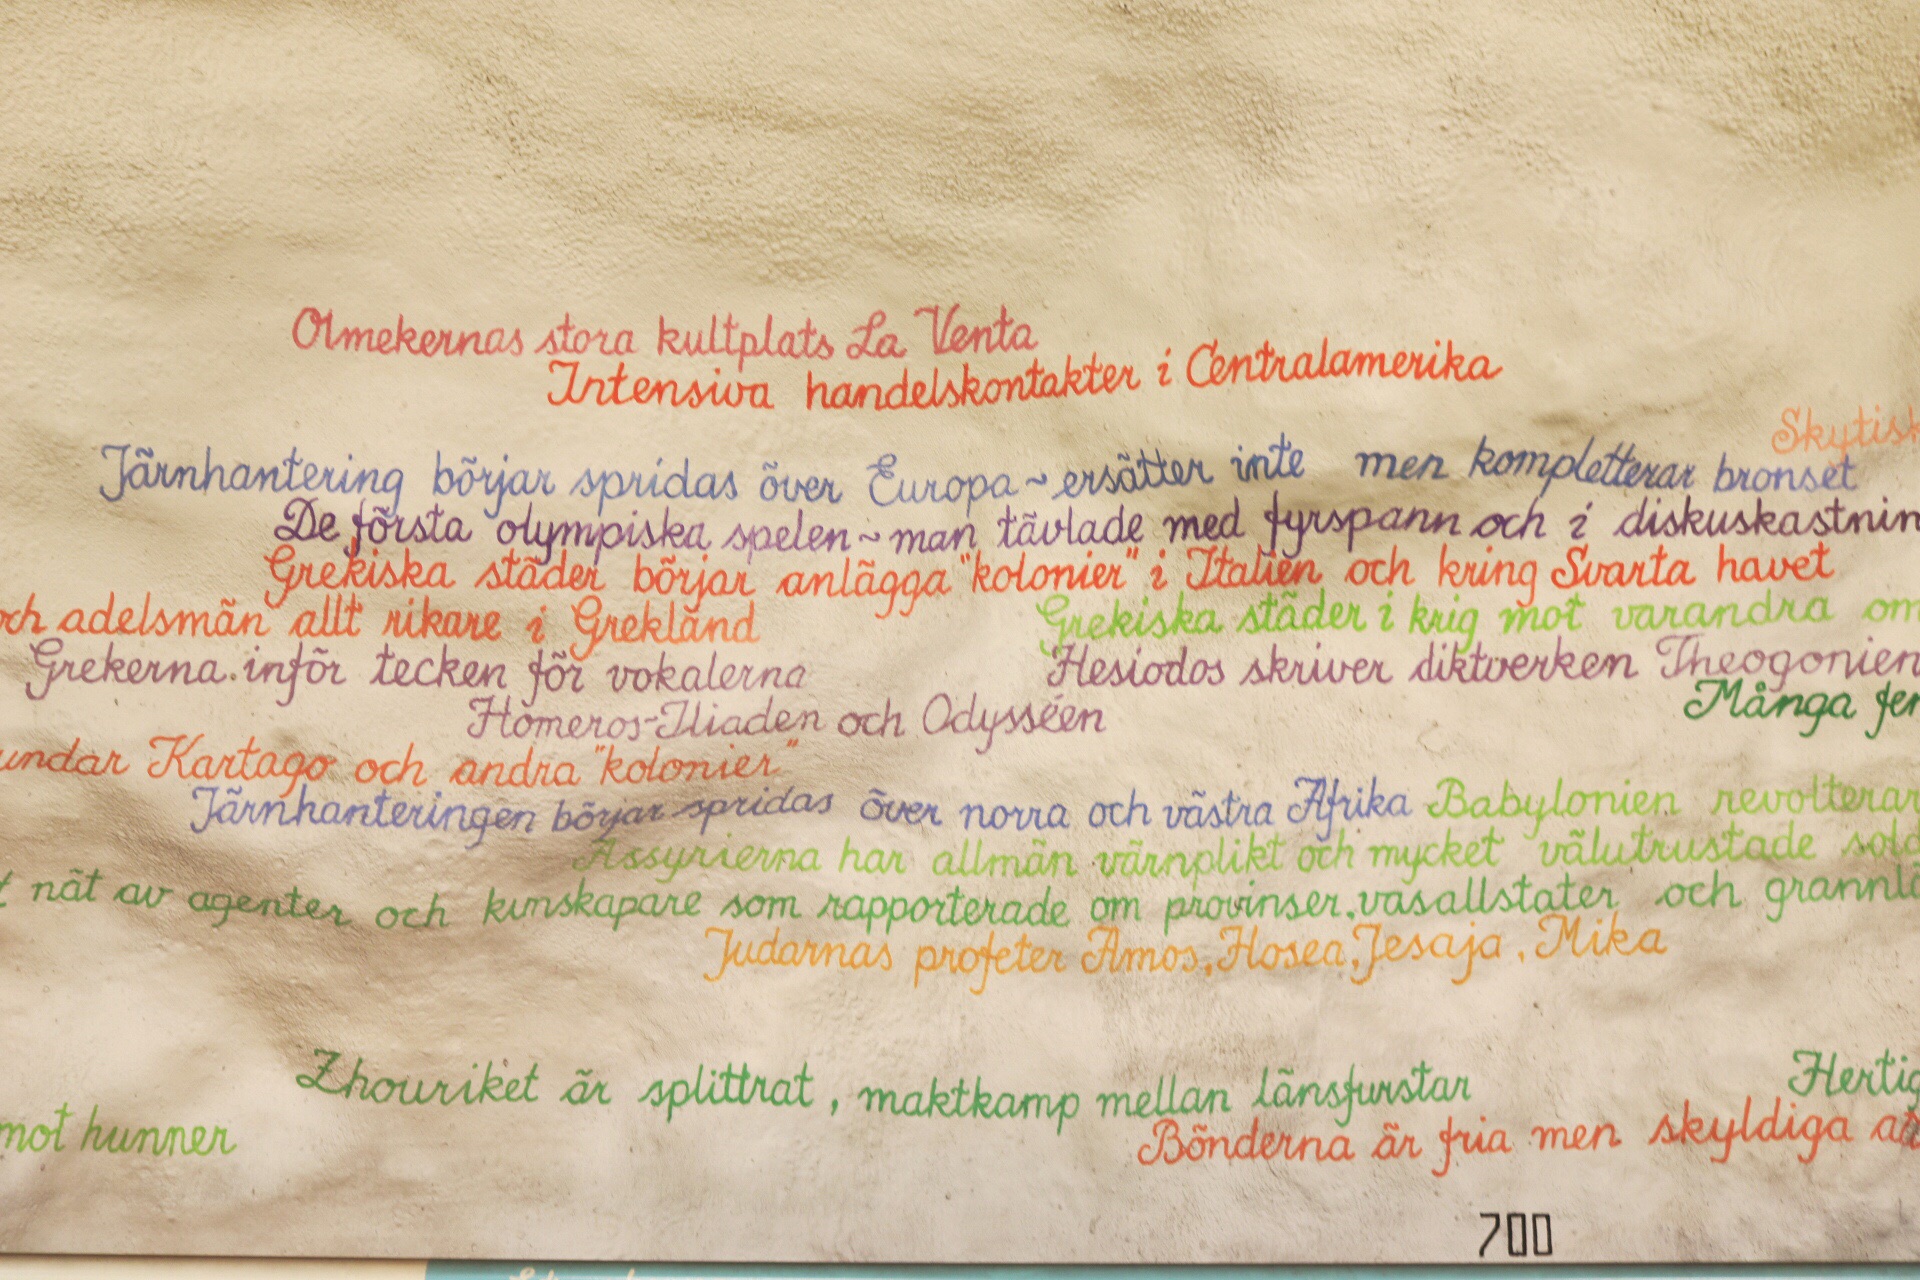 Olmekernas stora kultplats La Venta
Intensiva handelskontakter i Centralamerika
Skytisk
Järnhantering börjar spridas över Europa ~ ersätter inte men kompletterar bronset
De första olympiska spelen ~ man tävlade med fyrspann och i diskuskastnin
Grekiska städer börjar anlägga "kolonier" i Italien och kring Svarta havet
och adelsmän allt rikare i Grekland
Grekiska städer i krig mot varandra om
Grekerna inför tecken för vokalerna
Hesiodos skriver diktverken Theogonien
Homeros-Iliaden och Odysséen
Många fer
undar Kartago och andra "kolonier"
Järnhanteringen börjar spridas över norra och västra Afrika
Babylonien revolterar
Assyrierna har allmän värnplikt och mycket välutrustade sold
t nät av agenter och kunskapare som rapporterade om provinser, vasallstater och grannlä
Judarnas profeter Amos, Hosea, Jesaja, Mika
Zhouriket är splittrat, maktkamp mellan länsfurstar
Hertig
mot hunner
Bönderna är fria men skyldiga at
700